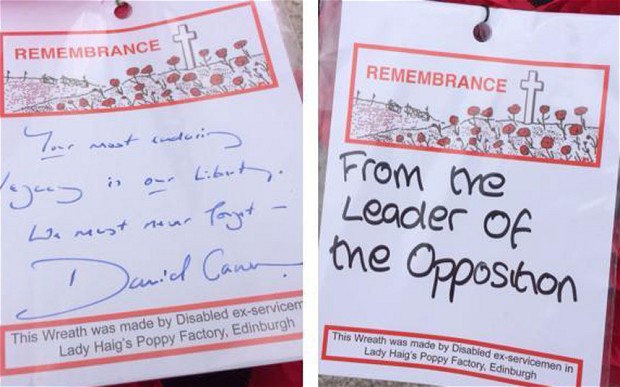 REMEMBRANCE
Your most enduring
legacy is our liberty.
We must never forget –
David Camer
This Wreath was made by Disabled ex-servicem
Lady Haig's Poppy Factory, Edinburgh
REMEMBRANCE
From the
Leader of
the Opposition
This Wreath was made by Disabled ex-servicemen in
Lady Haig's Poppy Factory, Edinburgh